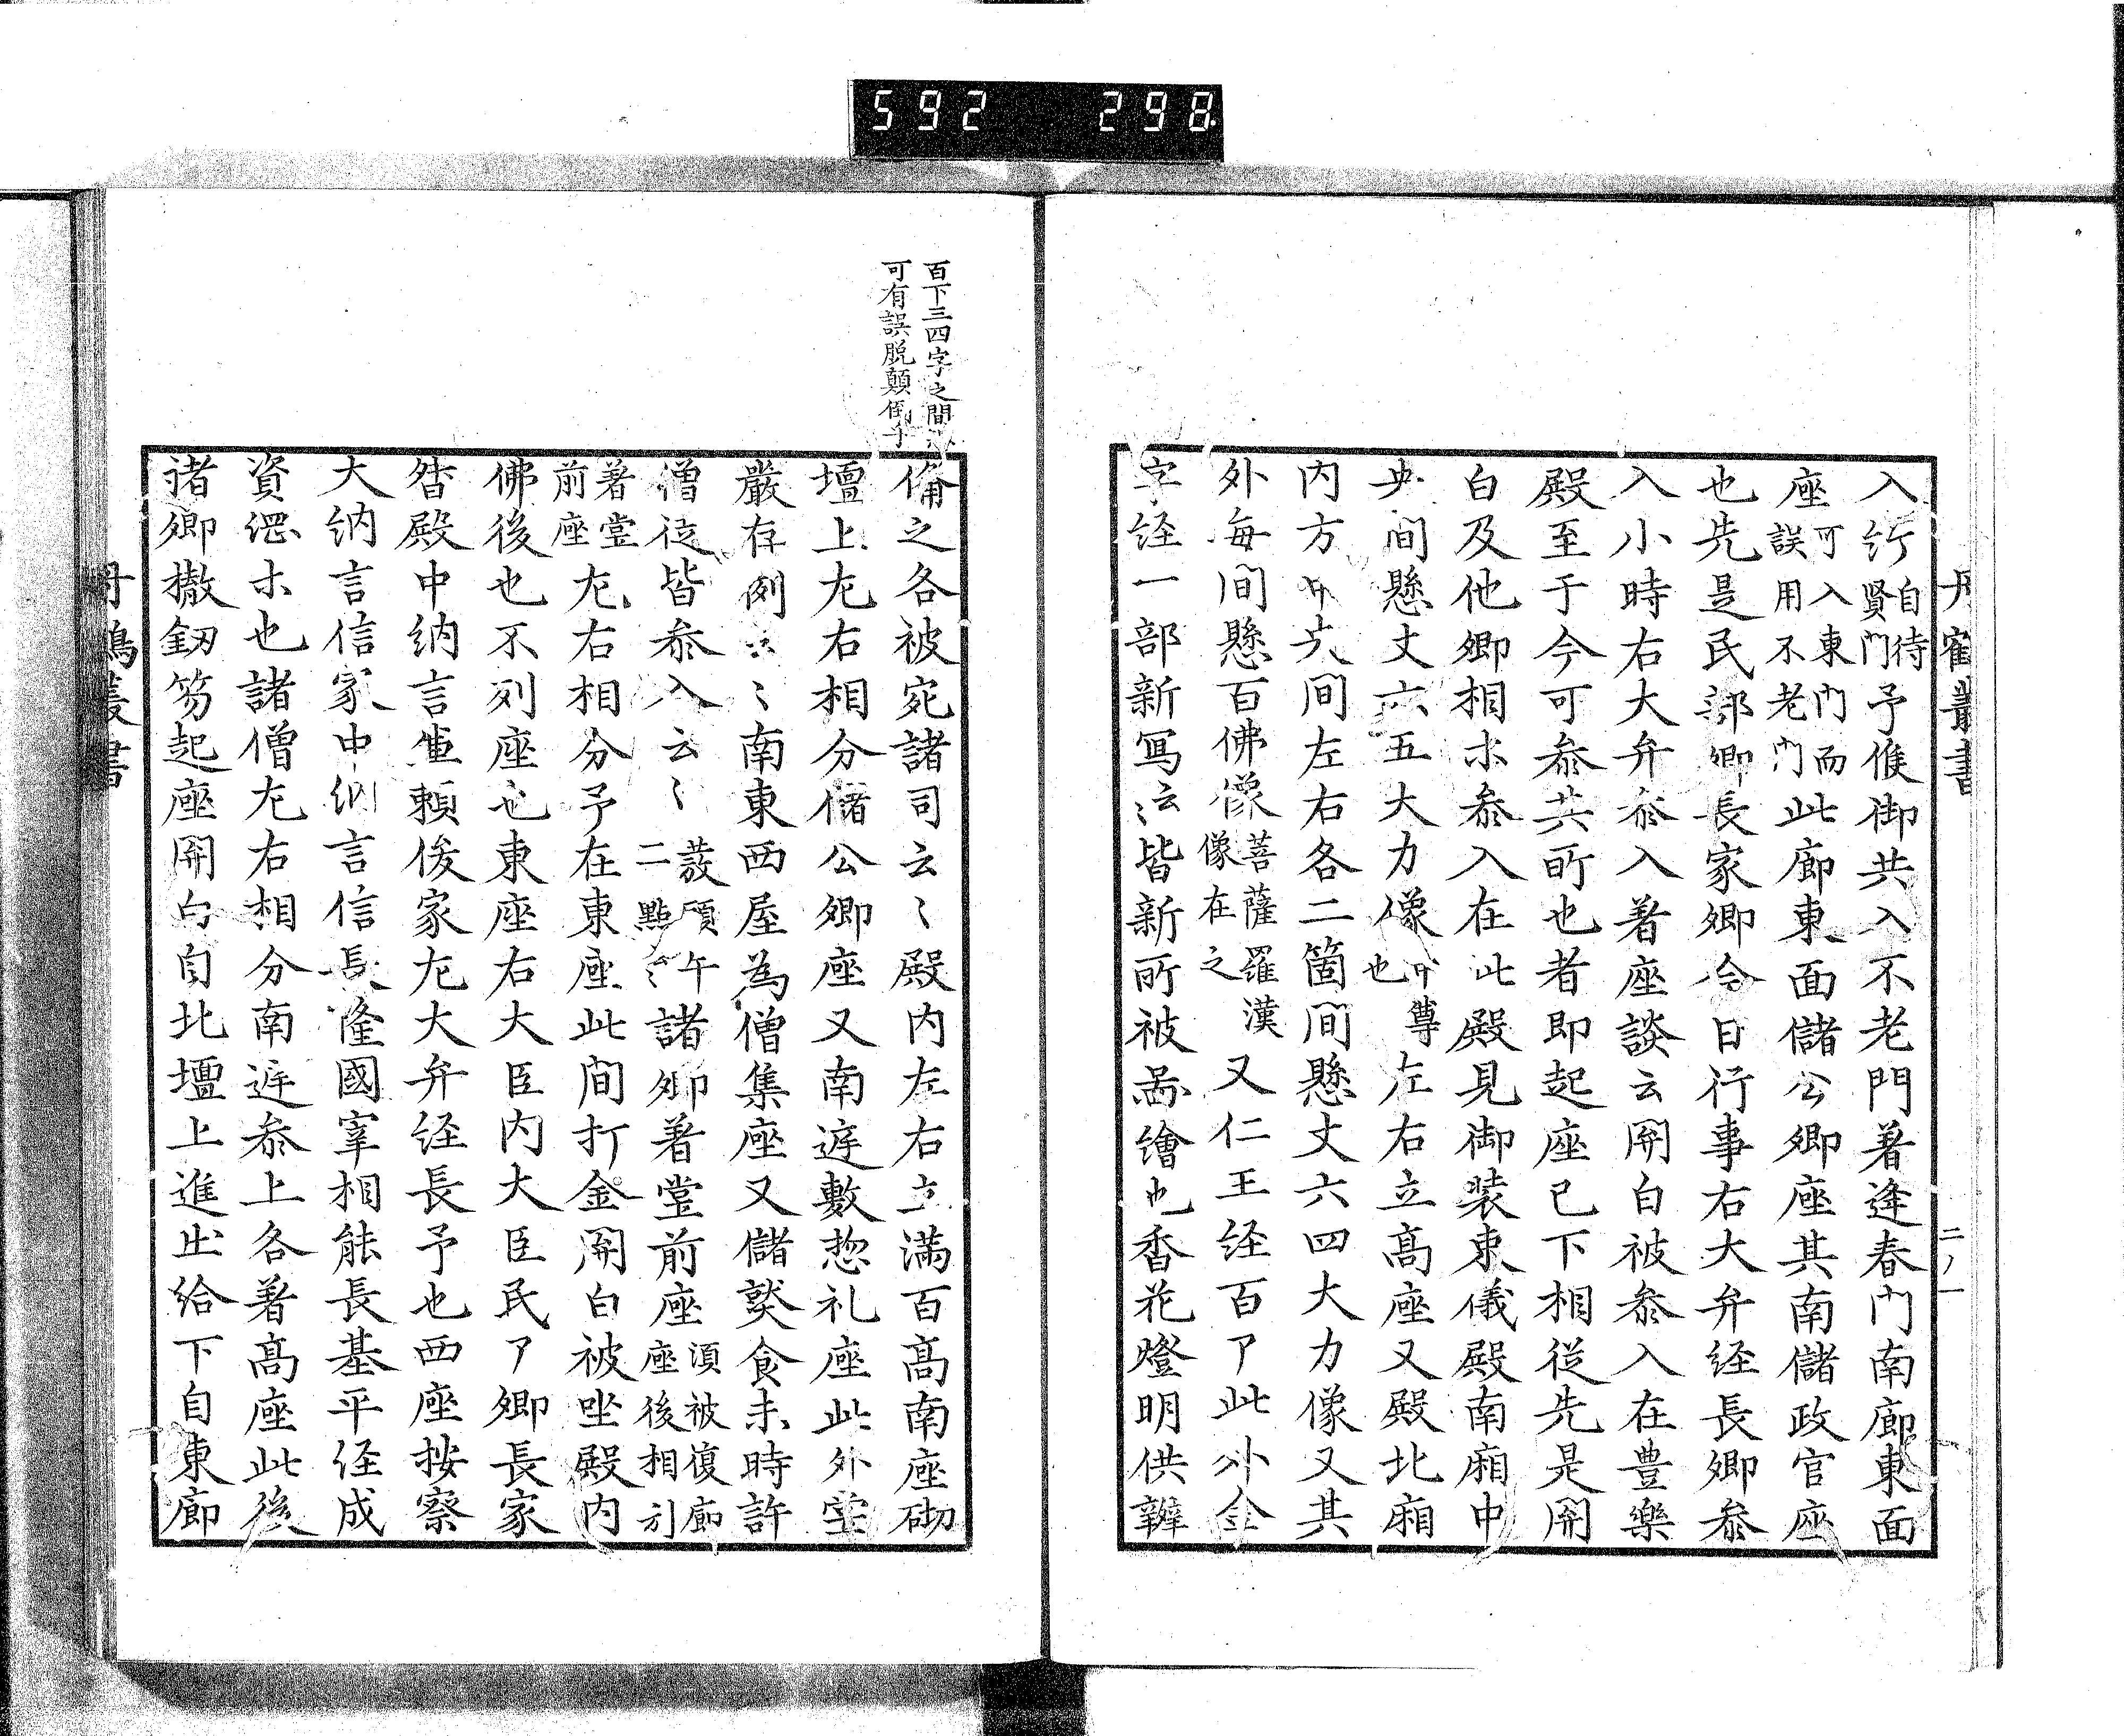 592 298
丹鶴叢書
二ノ一
入給自待賢門予候御共入不老門著逢春門南廊東面
座可入東門而誤用不老門此廊東面儲公卿座其南儲政官座
也先是民部卿長家卿今日行事右大弁経長卿参
入小時右大弁参入著座談云関白被参入在豊樂
殿至于今可参共所也者即起座已下相従先是関
白及他卿相ホ参入在此殿見御装束儀殿南廂中
央間懸丈六五大力像中尊也左右立高座又殿北廂
内方中央間左右各二箇間懸丈六四大力像又其
外毎間懸百佛像菩薩羅漢像在之又仁王経百了此外金
字経一部新寫云〻皆新所被啚繪也香花燈明供辨
百下三四字之間
可有誤脱顛倒乎
俻之各被宛諸司云〻殿内左右立満百高南座砌
壇上左右相分儲公卿座又南庭敷惣礼座此外堂
嚴存例云〻南東西屋為僧集座又儲饌食未時許
僧徒皆参入云〻發願午二點云〻諸卿著堂前座須被復廊座後相引
著堂前座左右相分予在東座此間打金関白被坐殿内
佛後也不列座也東座右大臣内大臣民了卿長家
皆殿中納言兼頼俊家左大弁経長予也西座按察
大納言信家中納言信長隆國宰相能長基平経成
資綱ホ也諸僧左右相分南庭参上各著高座此後
諸卿撤釼笏起座関白自北壇上進出給下自東廊
丹鶴叢書